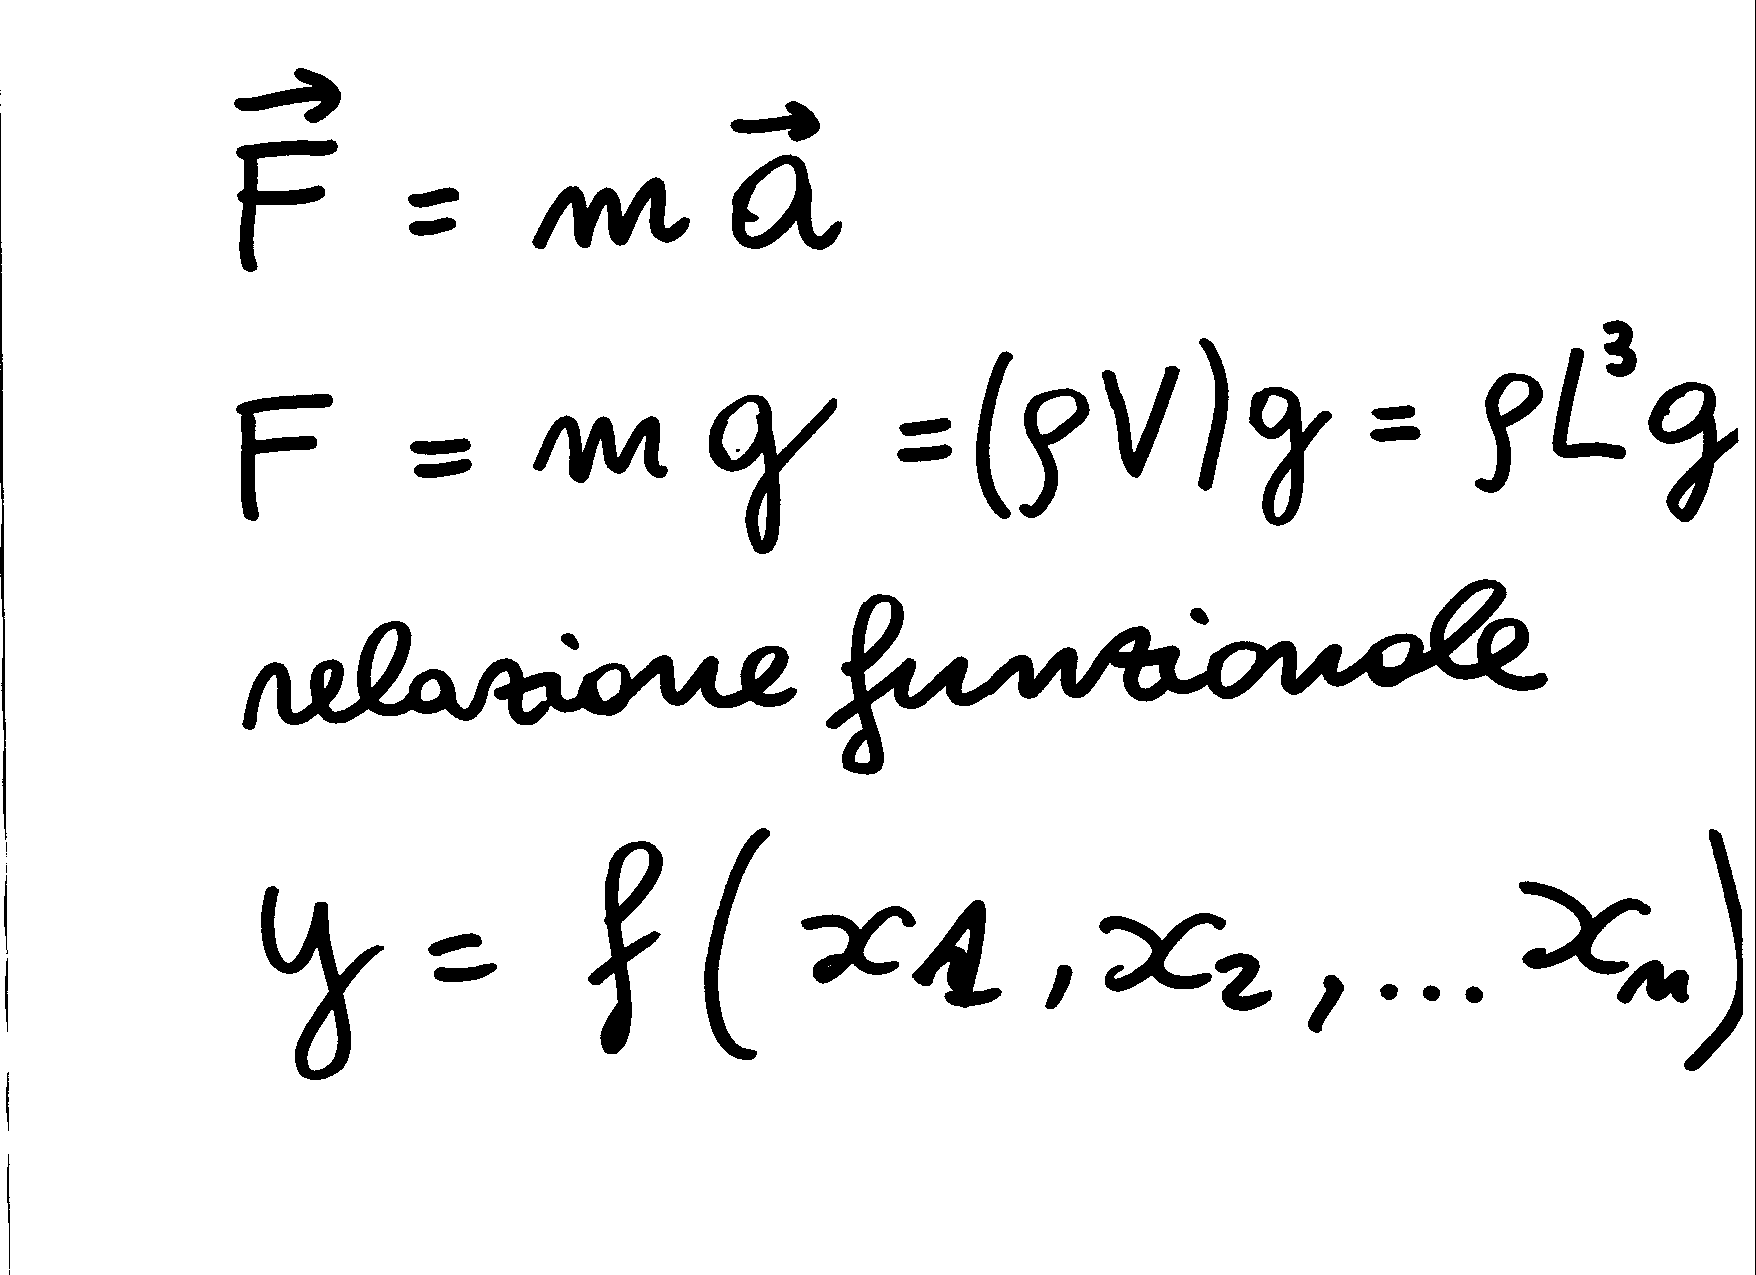 F⃗ = m a⃗
F = m g = (ρV)g = ρL³g
relazione funzionale
y = f(x₁, x₂, ... xₙ)